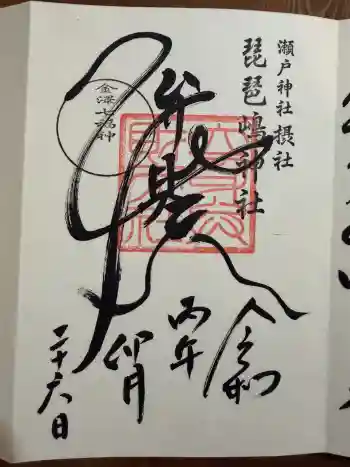 瀬戸神社摂社
琵琶嶋神社
弁財天
金澤七福神
令和
丙午
卯月
二十六日